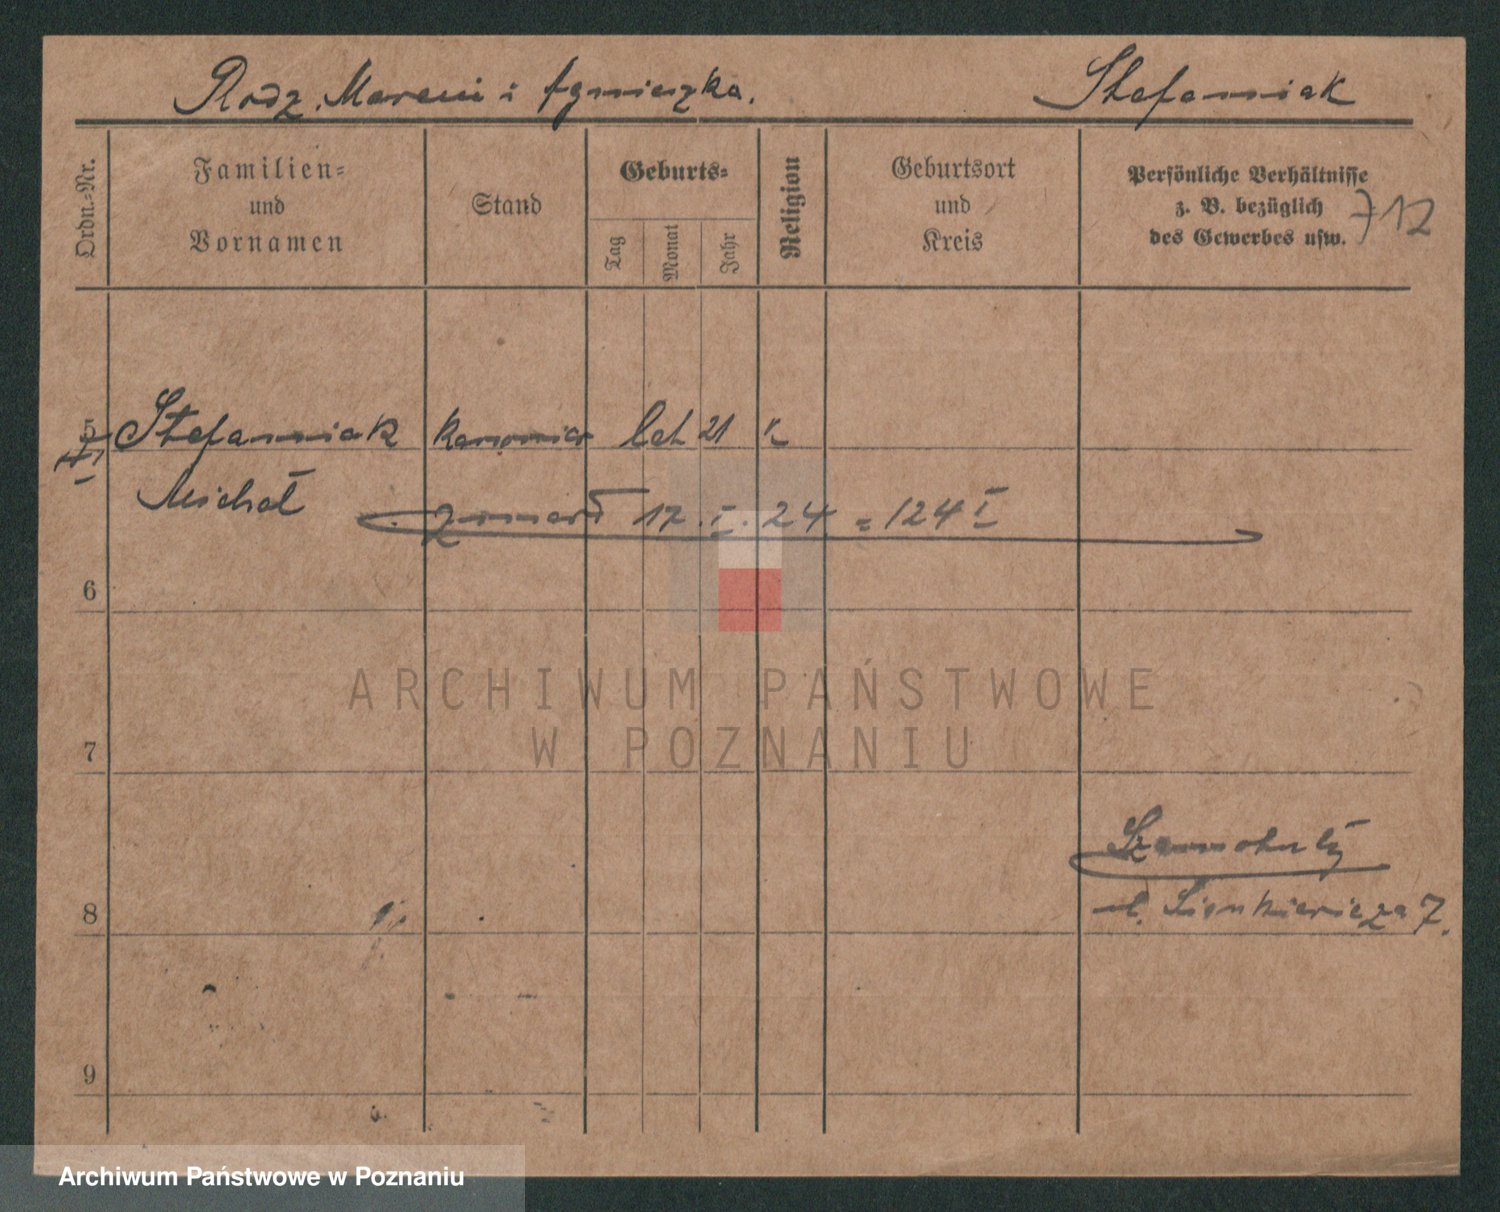 Rodz. Marcin i Agnieszka. Stefaniak
Ordn.-Nr.
Familien-
und
Vornamen
Stand
Geburts-
Tag
Monat
Jahr
Religion
Geburtsort
und
Kreis
Persönliche Verhältnisse
z. B. bezüglich
des Gewerbes usw.
712
5 Stefaniak kanonier lat 21 k
Michał
zmarł 17.I.24 = 124 I
6
ARCHIWUM PAŃSTWOWE
W POZNANIU
7
Szamotuły
8 ul. Sienkiewicza 7.
9
Archiwum Państwowe w Poznaniu